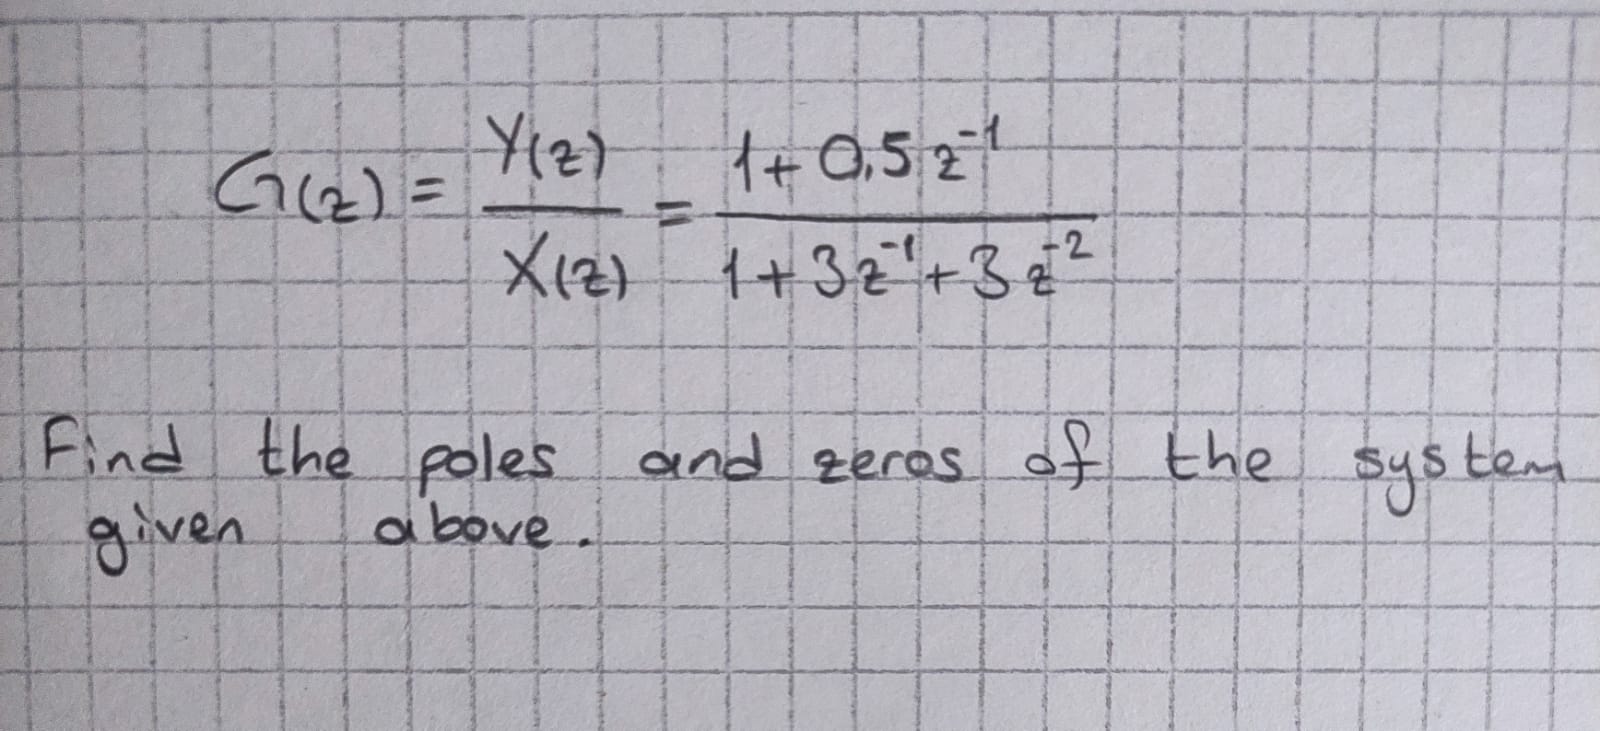 G(z) = Y(z) / X(z) = 1 + 0,5 z^-1 / 1 + 3z^-1 + 3z^-2
Find the poles and zeros of the system
given above.